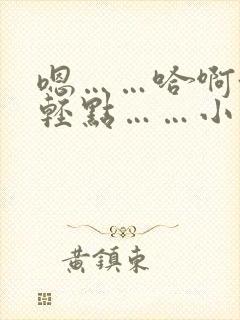 嗯……哈啊
輕點……小
黃鎮東